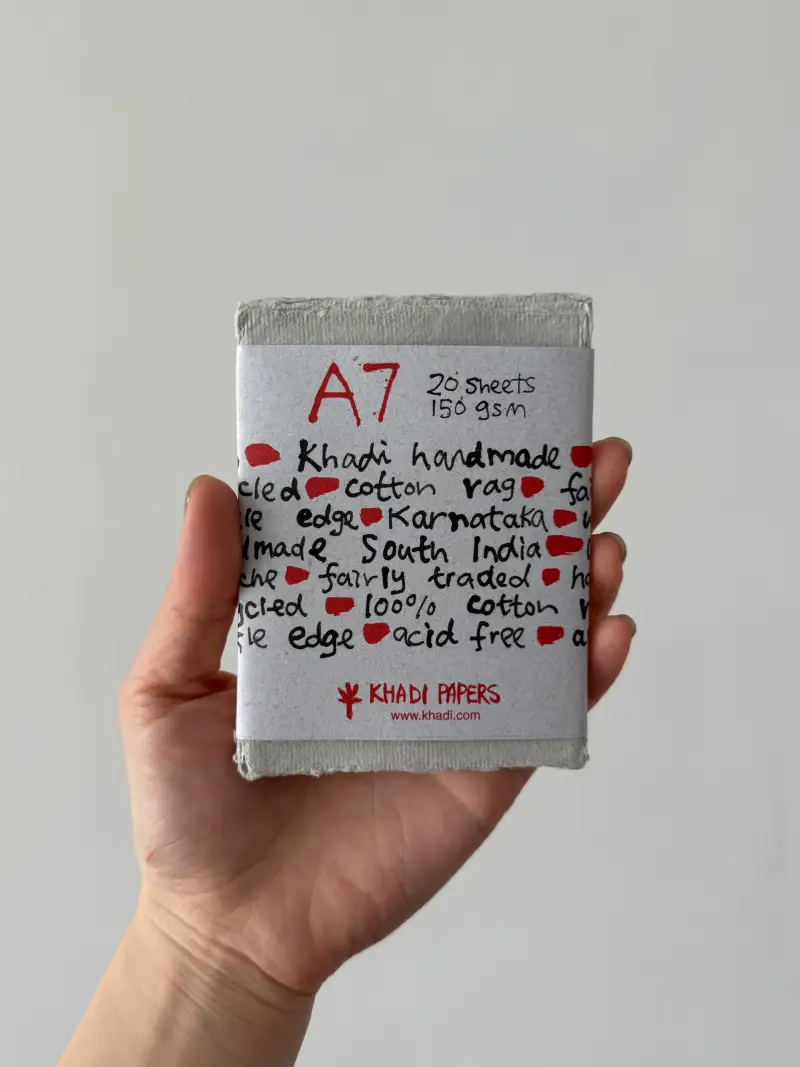 A7
20 sheets
150 gsm
Khadi handmade
cled cotton rag fai
le edge Karnataka
dmade South India
che fairly traded ha
ycled 100% cotton r
le edge acid free a
KHADI PAPERS
www.khadi.com